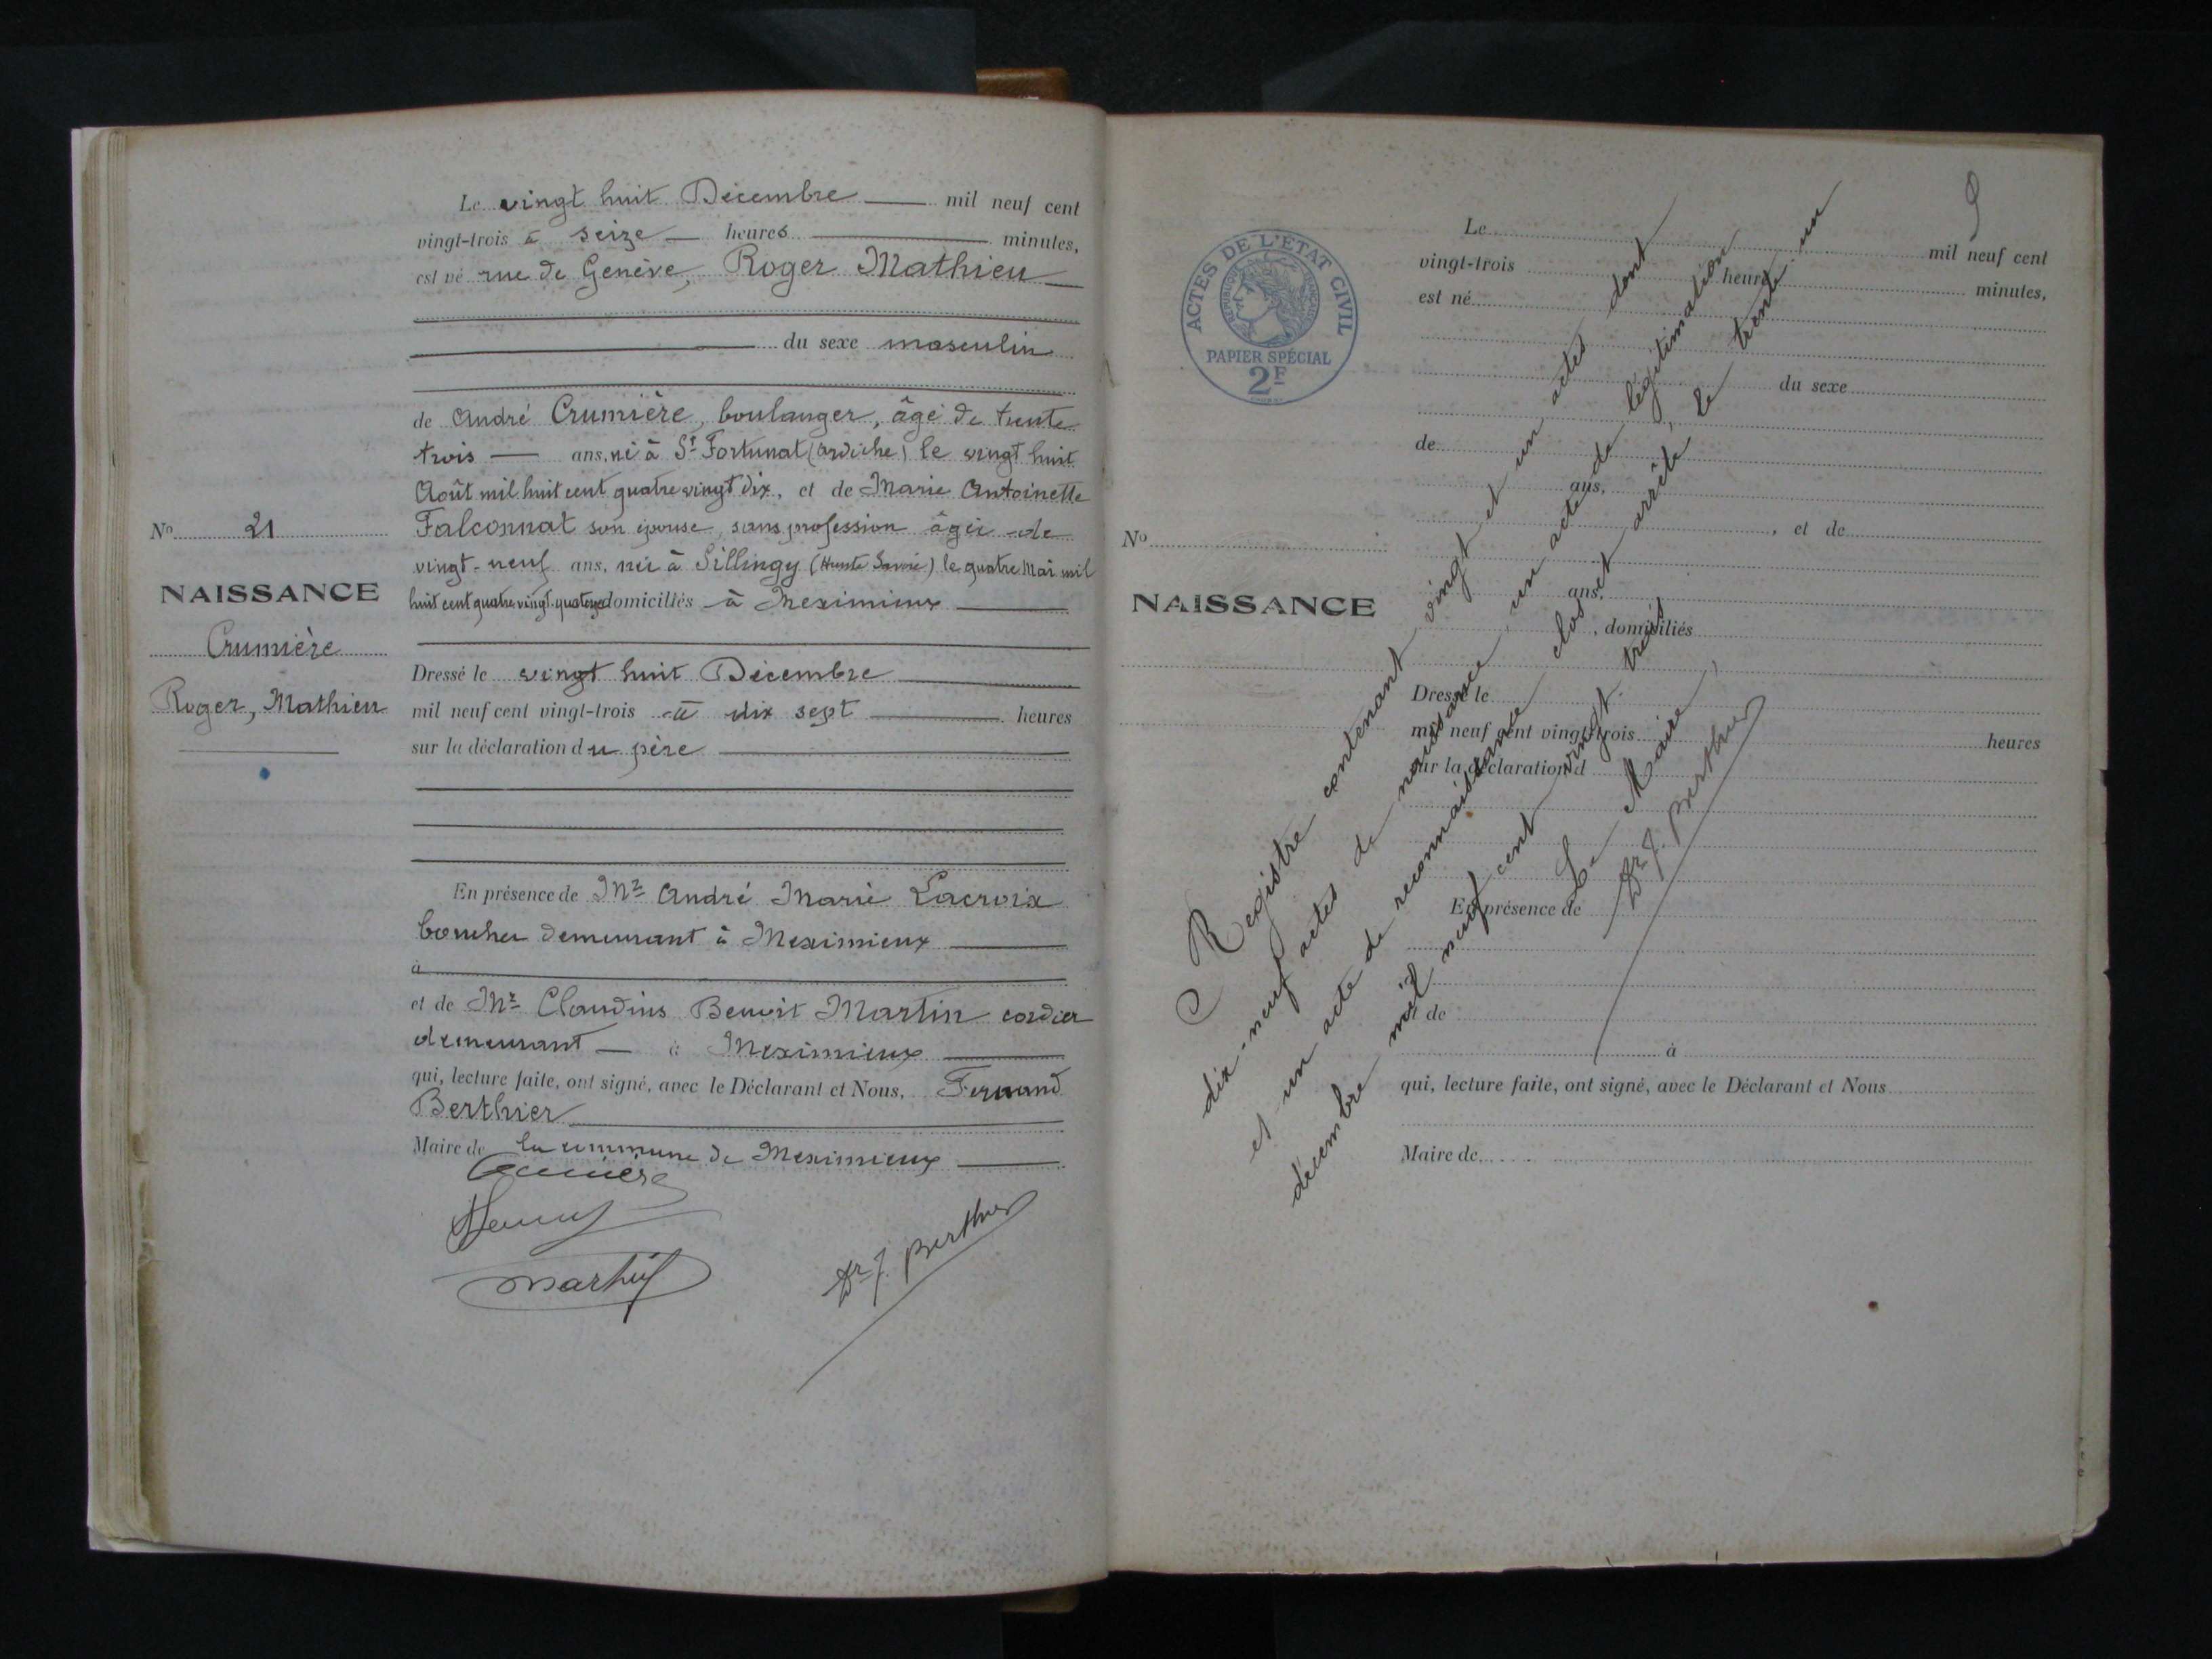 Le vingt huit Décembre mil neuf cent
vingt-trois à seize heures minutes,
est né rue de Genève, Roger Mathieu
du sexe masculin
de André Crumière, boulanger, âgé de trente
trois ans, né à St Fortunat (Ardèche) le vingt huit
Août mil huit cent quatre vingt dix, et de Marie Antoinette
Falconnat son épouse, sans profession âgée de
vingt-neuf ans, née à Sillingy (Haute Savoie) le quatre Mai mil
huit cent quatre vingt quatorze domiciliés à Meximieux
Dressé le vingt huit Décembre
mil neuf cent vingt-trois à dix sept heures
sur la déclaration du père
En présence de Mr André Marie Lacroix
boucher demeurant à Meximieux
à
et de Mr Claudius Benoit Martin cordier
demeurant à Meximieux
qui, lecture faite, ont signé, avec le Déclarant et Nous, Fernand
Berthier
Maire de la commune de Meximieux
Crumière
Martin
Dr F. Berthier
No 21
NAISSANCE
Crumière
Roger, Mathieu
9
ACTES DE L'ÉTAT CIVIL
RÉPUBLIQUE FRANÇAISE
PAPIER SPÉCIAL
2F
Le mil neuf cent
vingt-trois heures minutes,
est né
du sexe
de
ans,
, et de
ans,
, domiciliés
Dressé le
mil neuf cent vingt-trois heures
sur la déclaration d
En présence de
à
et de
à
qui, lecture faite, ont signé, avec le Déclarant et Nous
Maire de
No
NAISSANCE
Registre contenant vingt et un actes dont
dix-neuf actes de naissance un acte de légitimation
et un acte de reconnaissance clos et arrêté, le trente un
décembre mil neuf cent vingt trois
Le Maire,
Dr F. Berthier